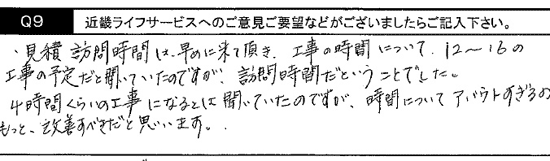 Q9 近畿ライフサービスへのご意見ご要望などがございましたらご記入下さい。
・見積訪問時間は、早めに来て頂き、工事の時間について、12〜16の
工事の予定だと聞いていたのですが、訪問時間だということでした。
4時間くらいの工事になるとは聞いていたのですが、時間についてアバウトすぎるの
もっと、改善すべきだと思います。